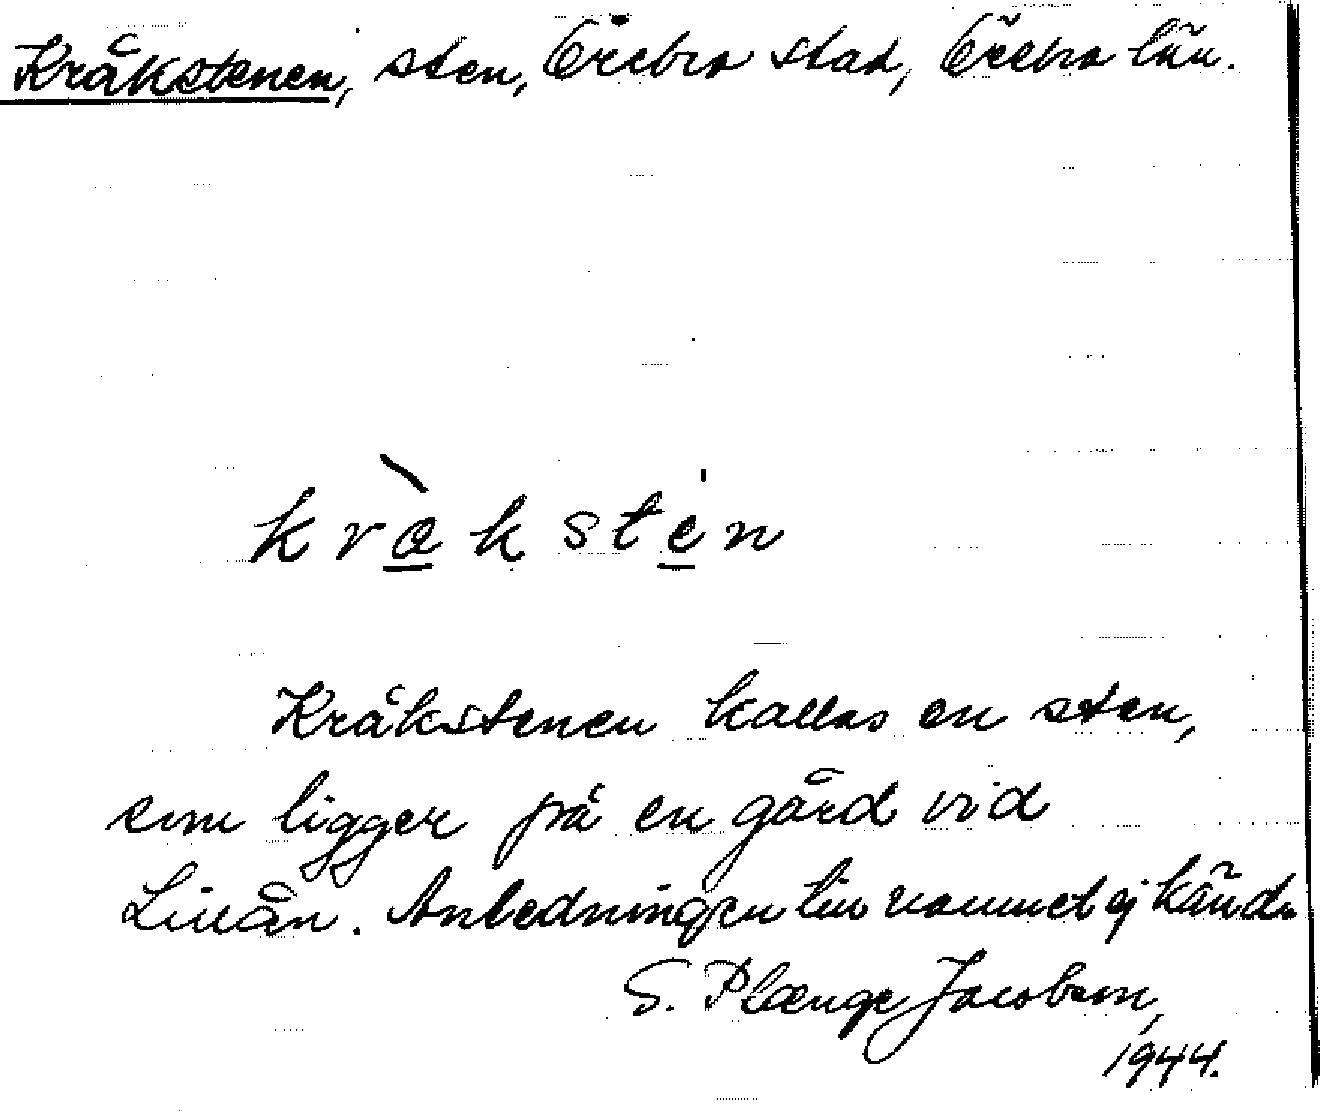 Kråkstenen, sten, Örebro stad, Örebro län.
kråkstén
Kråkstenen kallas en sten,
som ligger på en gård vid
Lillån. Anledningen till namnet ej känd.
S. Plænge Jacobson,
1944.